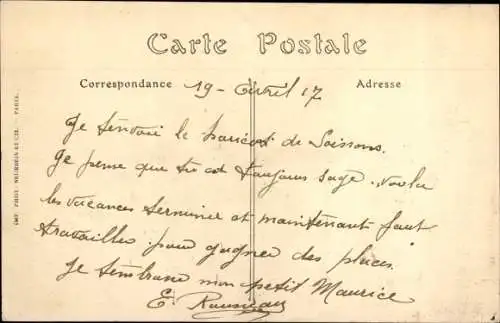 Carte Postale
Correspondance
Adresse
19 - Avril 17
Je t'envoie le haricot de Soissons.
Je pense que tu es toujours sage. voila
les vacances terminées et maintenant faut
travailler pour gagner des places.
Je t'embrasse mon petit Maurice
E. Rousseau
IMP. PHOT. NEURDEIN ET CIE. - PARIS.